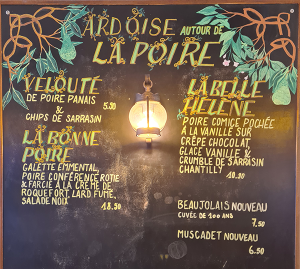 ARDOISE AUTOUR DE
LA POIRE
VELOUTÉ
DE POIRE PANAIS
&
CHIPS DE SARRASIN
5.50
LA BONNE
POIRE
GALETTE EMMENTAL,
POIRE CONFITURE RÔTIE
& FARCIE À LA CRÈME DE
ROQUEFORT, LARD FUMÉ,
SALADE NOIX
18.50
LA BELLE
HÉLÈNE
POIRE COMICE POCHÉE
À LA VANILLE SUR
CRÊPE CHOCOLAT
GLACE VANILLE &
CRUMBLE DE SARRASIN
CHANTILLY
10.90
BEAUJOLAIS NOUVEAU
CUVÉE DE 100 ANS
7.50
MUSCADET NOUVEAU
6.50